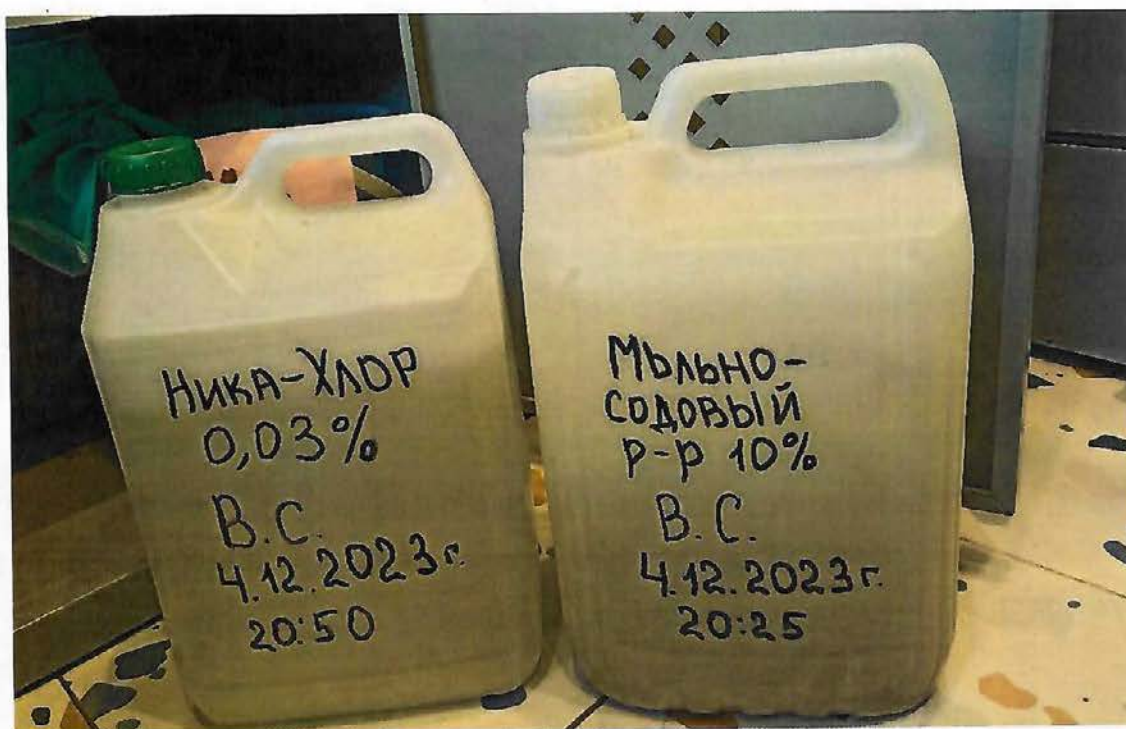 Ника-Хлор
0,03%
В.С.
4.12.2023г.
20:50
Мыльно-
содовый
р-р 10%
В.С.
4.12.2023г.
20:25